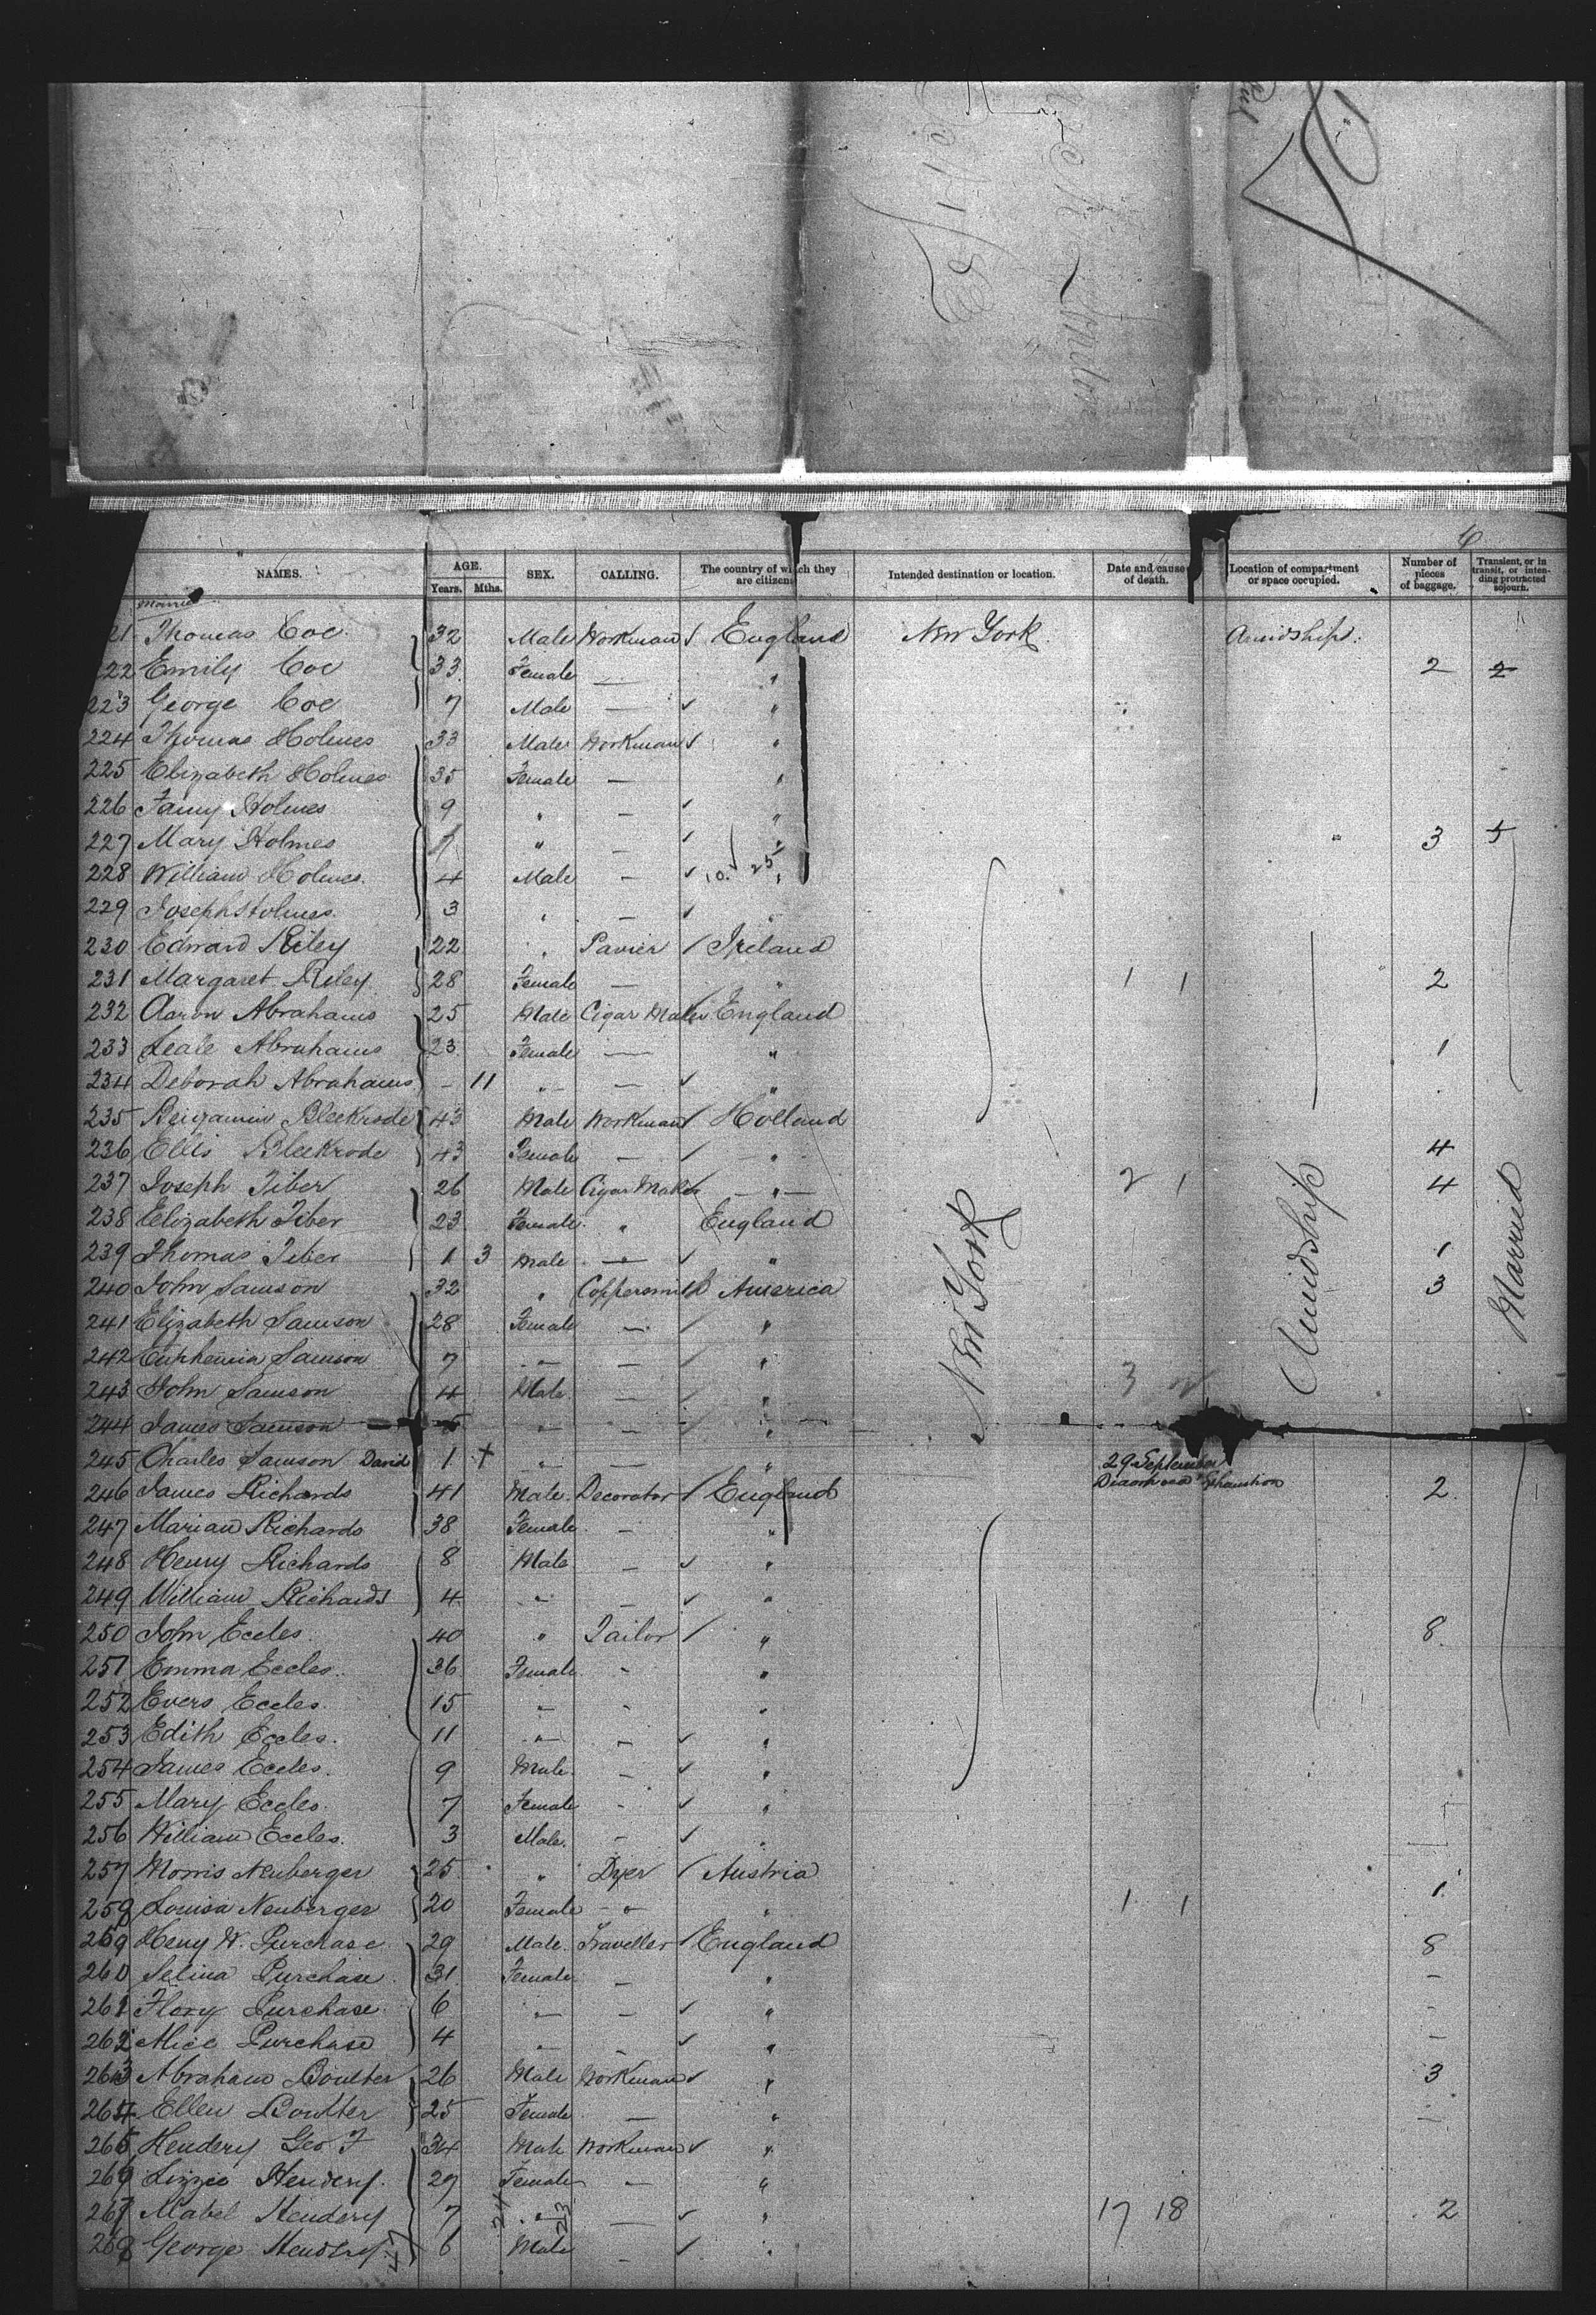 6
NAMES. AGE. Years. Mths. SEX. CALLING. The country of which they are citizens Intended destination or location. Date and cause of death. Location of compartment or space occupied. Number of pieces of baggage. Transient, or in transit, or intending protracted sojourn.
Married
21 Thomas Coe 32 Male Workman England New York Amidships
222 Emily Coe 33 Female — " 2 2
223 George Coe 7 Male — "
224 Thomas Holmes 33 Male Workman "
225 Elizabeth Holmes 35 Female — "
226 Fanny Holmes 9 " — "
227 Mary Holmes 7 " — " " 3 5
228 William Holmes 4 Male — 10. 25 "
229 Joseph Holmes 3 " — "
230 Edward Riley 22 " Pavier Ireland
231 Margaret Riley 28 Female — " 1 1 2
232 Aaron Abrahams 25 Male Cigar Maker England
233 Leale Abrahams 23 Female — " 1
234 Deborah Abrahams - 11 " — "
235 Benjamin Bleekrode 43 Male Workman Holland
236 Ellis Bleekrode 43 Female — " 4
237 Joseph Tiber 26 Male Cigar Maker — " — 2 1 4
238 Elizabeth Tiber 23 Female " England
239 Thomas Tiber 1 3 Male — " 1
240 John Samson 32 " Coppersmith America 3
New York Amidship Married
241 Elizabeth Samson 28 Female — "
242 Euphemia Samson 7 " — "
243 John Samson 4 Male — " 3
244 James Samson " — "
245 Charles Samson David 1 + " — " 29 September
246 James Richards 41 Male Decorator England Diaorhoea Exhaustion 2
247 Marian Richards 38 Female — "
248 Henry Richards 8 Male — "
249 William Richards 4 " — "
250 John Eccles 40 " Tailor " 8
251 Emma Eccles 36 Female - "
252 Evers Eccles 15 " - "
253 Edith Eccles 11 " — "
254 James Eccles 9 Male — "
255 Mary Eccles 7 Female - "
256 William Eccles 3 Male - "
257 Morris Neuberger 25 " Dyer Austria
258 Louisa Neuberger 20 Female - " - " 1 1 1
259 Heny W. Purchase 29 Male Traveller England 8
260 Selina Purchase 31 Female — " -
261 Flory Purchase 6 " — " -
262 Alice Purchase 4 " — " -
263 Abraham Boulter 26 Male Workman " 3
264 Ellen Boulter 25 Female — " —
265 Hendery Geo F 34 Male Workman "
266 Lizzie Hendery 27 Female — "
267 Mabel Hendery 7 " — " 17 18 2
268 George Hendery 6 Male — "